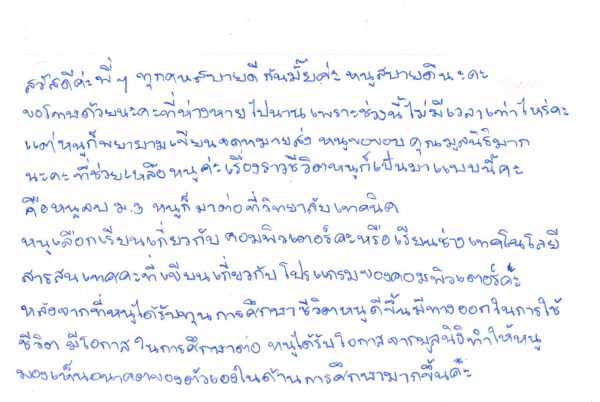 สวัสดีค่ะพี่ๆ ทุกคนสบายดีกันมั๊ยค่ะ หนูสบายดีนะคะ
ขอโทษด้วยนะคะที่ห่างหายไปนาน เพราะช่วงนี้ไม่มีเวลาเท่าไหร่คะ
แต่หนูก็พยายามเขียนจดหมายส่ง หนูขอขอบคุณมูลนิธิมาก
นะคะ ที่ช่วยเหลือหนูค่ะเรื่องราวชีวิตหนูก็เป็นมาแบบนี้คะ
คือหนูจบ ม.3 หนูก็มาต่อที่วิทยาลัยเทคนิค
หนูเลือกเรียนเกี่ยวกับ คอมพิวเตอร์คะหรือเรียนช่างเทคโนโลยี
สารสนเทศคะที่เขียนเกี่ยวกับโปรแกรมของคอมพิวเตอร์ค๊ะ
หลังจากที่หนูได้รับทุนการศึกษาชีวิตหนูดีขึ้นมีทางออกในการใช้
ชีวิต มีโอกาสในการศึกษาต่อ หนูได้รับโอกาสจากมูลนิธิทำให้หนู
มองเห็นอนาคตของตัวเองในด้านการศึกษามากขึ้นค๊ะ